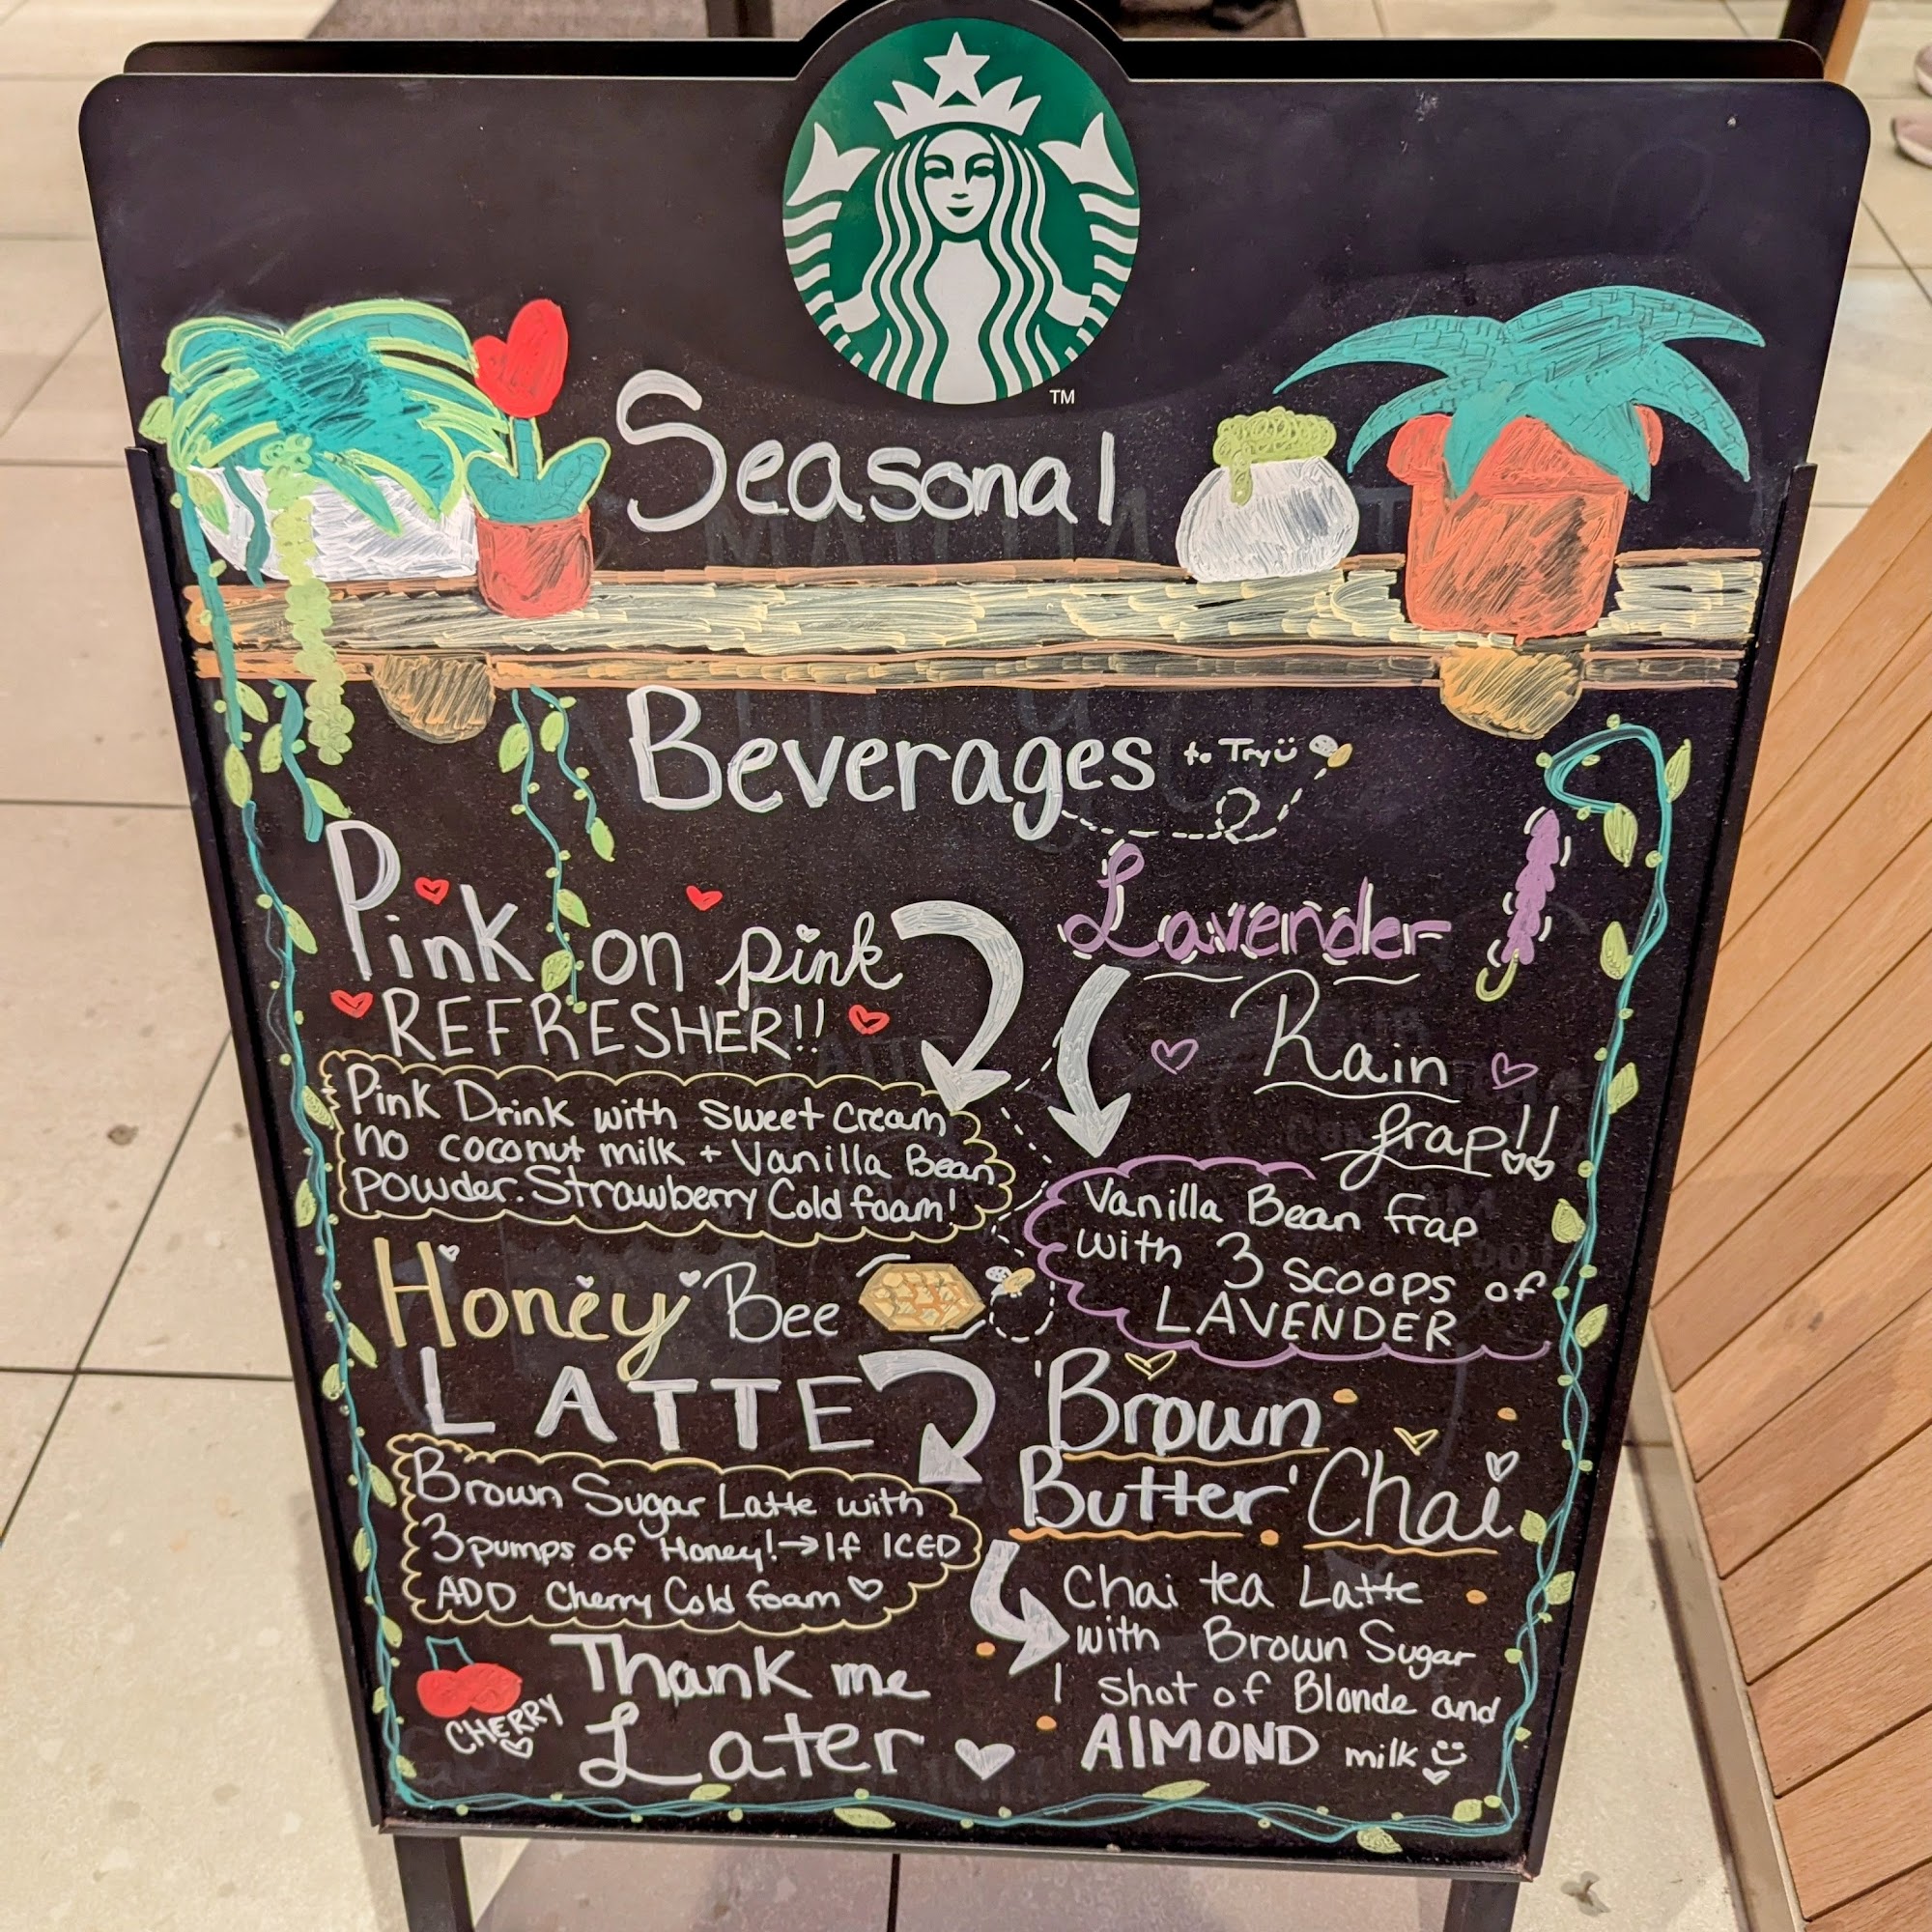 TM
Seasonal
Beverages to Try
Pink on pink
REFRESHER!!
Pink Drink with sweet cream
no coconut milk + Vanilla Bean
powder. Strawberry Cold foam!
Honey Bee
LATTE
Brown Sugar Latte with
3 pumps of Honey! → If ICED
ADD Cherry Cold foam
CHERRY
Thank me
Later
Lavender
Rain
frap!!
Vanilla Bean frap
with 3 scoops of
LAVENDER
'Brown
Butter' Chai
Chai tea Latte
with Brown Sugar
1 shot of Blonde and
AlMOND milk